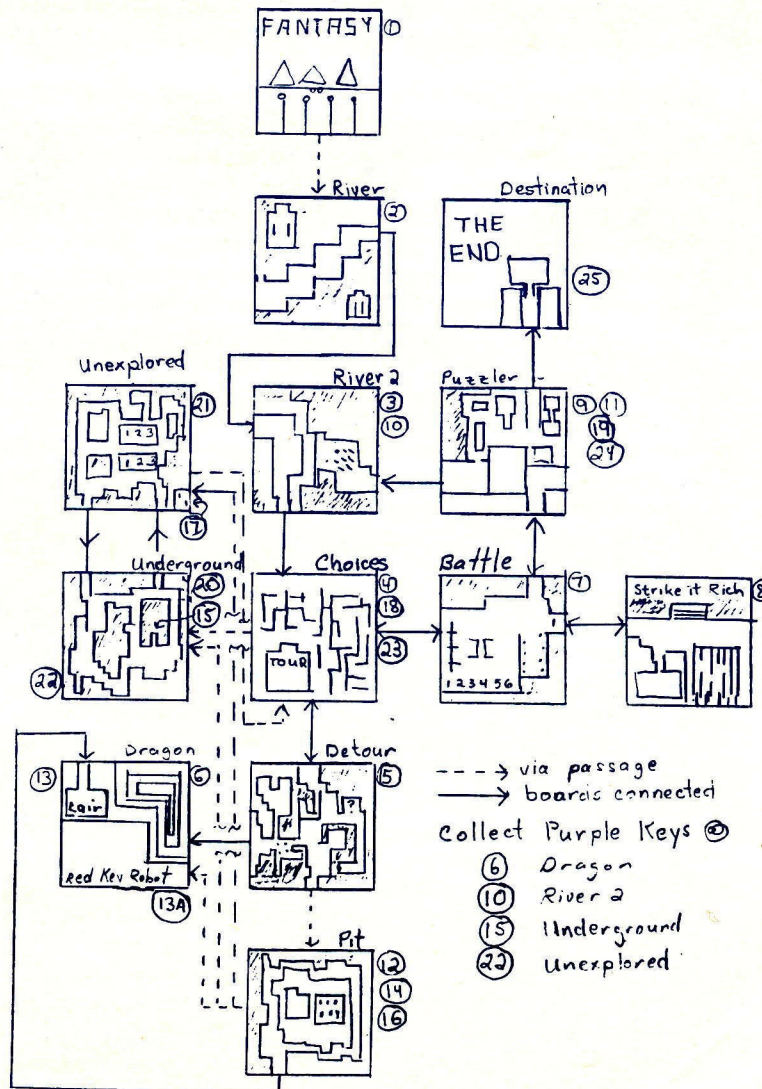 FANTASY ①
River
②
Destination
THE
END
㉕
Unexplored
㉑
1 2 3
1 2 3
⑰
River 2
③
⑩
Puzzler
⑨ ⑪
⑲
㉔
Underground
⑳
⑮
㉒
Choices
④
⑱
㉓
TOUR
Battle
⑦
1 2 3 4 5 6
Strike it Rich
8
Dragon
⑬
⑥
Lair
Red Key Robot
13A
Detour
⑤
Pit
⑫
⑭
⑯
via passage
boards connected
Collect Purple Keys
⑥ Dragon
⑩ River 2
⑮ Underground
㉒ Unexplored